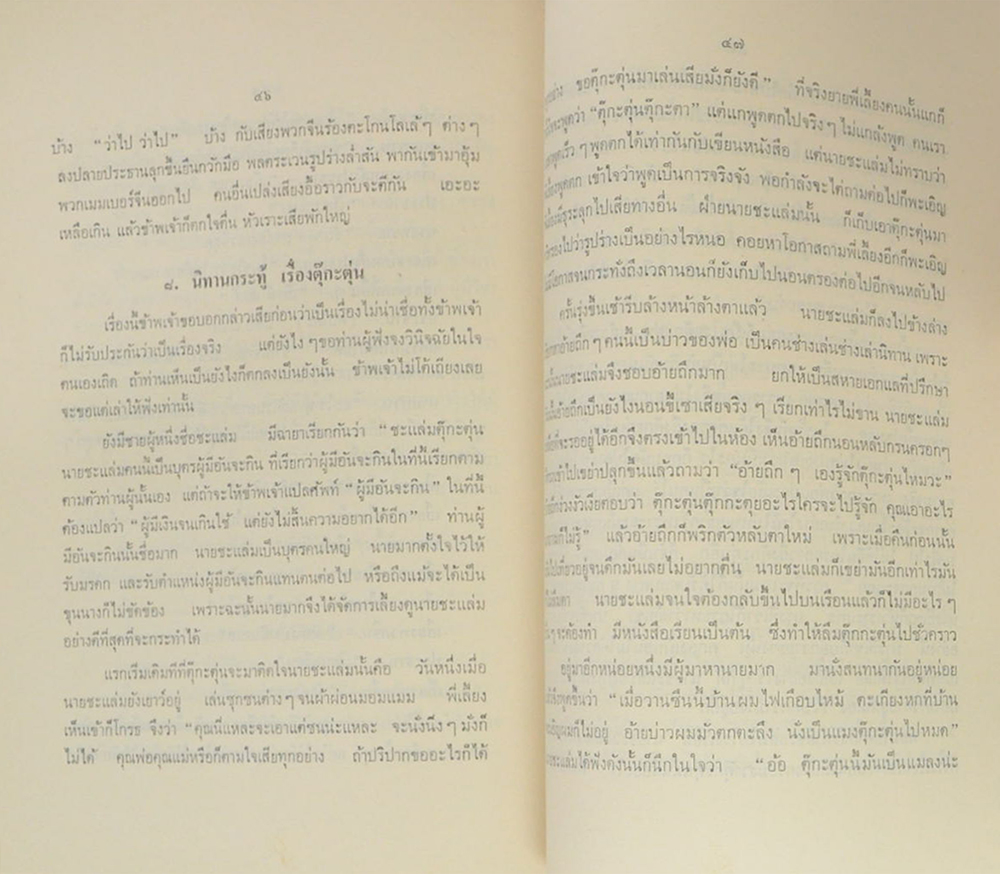 ๔๖
บ้าง "ว่าไป ว่าไป" บ้าง กับเสียงพวกจีนร้องตะโกนโลเล้ๆ ต่างๆ
ลงปลายประธานลุกขึ้นยืนกวักมือ พลตระเวนรูปร่างล่ำสัน พากันเข้ามาอุ้ม
พวกเมมเบอร์จีนออกไป คนอื่นเปล่งเสียงอื้อราวกับจะตีกัน เอะอะ
เหลือเกิน แล้วข้าพเจ้าก็ตกใจตื่น หัวเราะเสียพักใหญ่
๘. นิทานกระทู้ เรื่องตุ๊กะตุ่น
เรื่องนี้ข้าพเจ้าขอบอกกล่าวเสียก่อนว่าเป็นเรื่องไม่น่าเชื่อทั้งข้าพเจ้า
ก็ไม่รับประกันว่าเป็นเรื่องจริง แต่ยังไงๆขอท่านผู้ฟังจงวินิจฉัยในใจ
ตนเองเถิด ถ้าท่านเห็นเป็นยังไงก็ตกลงเป็นยังนั้น ข้าพเจ้าไม่โต้เถียงเลย
จะขอแต่เล่าให้ฟังเท่านั้น
ยังมีชายผู้หนึ่งชื่อชะแล่ม มีฉายาเรียกกันว่า "ชะแล่มตุ๊กะตุ่น
นายชะแล่มคนนี้เป็นบุตรผู้มีอันจะกิน ที่เรียกว่าผู้มีอันจะกินในที่นี้เรียกตาม
ตามตัวท่านผู้นั้นเอง แต่ถ้าจะให้ข้าพเจ้าแปลศัพท์ "ผู้มีอันจะกิน" ในที่นี้
ต้องแปลว่า "ผู้มีเงินจนเกินใช้ แต่ยังไม่สิ้นความอยากได้อีก" ท่านผู้
มีอันจะกินนั้นชื่อมาก นายชะแล่มเป็นบุตรคนใหญ่ นายมากตั้งใจไว้ให้
รับมรดก และรับตำแหน่งผู้มีอันจะกินแทนตนต่อไป หรือถึงแม้จะได้เป็น
ขุนนางก็ไม่ขัดข้อง เพราะฉะนั้นนายมากจึงได้จัดการเลี้ยงดูนายชะแล่ม
อย่างดีที่สุดที่จะกระทำได้
แรกเริ่มเดิมทีที่ตุ๊กะตุ่นจะมาติดใจนายชะแล่มนั้นคือ วันหนึ่งเมื่อ
นายชะแล่มยังเยาว์อยู่ เล่นซุกซนต่างๆจนผ้าผ่อนมอมแมม พี่เลี้ยง
เห็นเข้าก็โกรธ จึงว่า "คุณนี่แหละจะเอาแต่ซนน่ะแหละ จะนั่งนิ่งๆมั่งก็
ไม่ได้ คุณพ่อคุณแม่หรือก็ตามใจเสียทุกอย่าง ถ้าปริปากขออะไรก็ได้
๔๗
ขอตุ๊กะตุ่นมาเล่นเสียมั่งก็ยังดี" ที่จริงยายพี่เลี้ยงคนนั้นแกก็
จะพูดว่า "ตุ๊กะตุ่นตุ๊กะตา" แต่แกพูดตกไปจริงๆ ไม่แกล้งพูด คนเรา
พูดเร็วๆพูดตกได้เท่ากันกับเขียนหนังสือ แต่นายชะแล่มไม่ทราบว่า
พูดตก เข้าใจว่าพูดเป็นการจริงจัง พอกำลังจะไต่ถามต่อไปก็พะเอิญ
ธุระลุกไปเสียทางอื่น ฝ่ายนายชะแล่มนั้น ก็เก็บเอาตุ๊กะตุ่นมา
ตรองไปว่ารูปร่างเป็นอย่างไรหนอ คอยหาโอกาสถามพี่เลี้ยงอีกก็พะเอิญ
โอกาสจนกระทั่งถึงเวลานอนก็ยังเก็บไปนอนตรองต่อไปอีกจนหลับไป
ครั้นรุ่งขึ้นเช้ารีบล้างหน้าล้างตาแล้ว นายชะแล่มก็ลงไปข้างล่าง
หาอ้ายถึกๆคนนี้เป็นบ่าวของพ่อ เป็นคนช่างเล่นช่างเล่านิทาน เพราะ
นายชะแล่มจึงชอบอ้ายถึกมาก ยกให้เป็นสหายเอกแลที่ปรึกษา
อ้ายถึกเป็นยังไงนอนขี้เซาเสียจริงๆ เรียกเท่าไรไม่ขาน นายชะแล่ม
จะรออยู่ได้อีกจึงตรงเข้าไปในห้อง เห็นอ้ายถึกนอนหลับกรนครอกๆ
เข้าไปเขย่าปลุกขึ้นแล้วถามว่า "อ้ายถึกๆ เองรู้จักตุ๊กะตุ่นไหมวะ"
ง่วงงัวเงียตอบว่า ตุ๊กะตุ่นตุ๊กกะตุยอะไรใครจะไปรู้จัก คุณเอาอะไร
ก็ไม่รู้" แล้วอ้ายถึกก็พริกตัวหลับตาใหม่ เพราะเมื่อคืนก่อนนั้น
ไปเที่ยวอยู่จนดึกมันเลยไม่อยากตื่น นายชะแล่มก็เขย่ามันอีกเท่าไรมัน
นายชะแล่มจนใจต้องกลับขึ้นไปบนเรือนแล้วก็ไม่มีอะไรๆ
จะต้องทำ มีหนังสือเรียนเป็นต้น ซึ่งทำให้ลืมตุ๊กกะตุ่นไปชั่วคราว
อยู่มาอีกหน่อยหนึ่งมีผู้มาหานายมาก มานั่งสนทนากันอยู่หน่อย
พูดขึ้นว่า "เมื่อวานซืนนี้บ้านผมไฟเกือบไหม้ ตะเกียงหกที่บ้าน
ผมก็ไม่อยู่ อ้ายบ่าวผมมัวตกตะลึง นั่งเป็นแมงตุ๊กะตุ่นไปหมด"
ชะแล่มได้ฟังดังนั้นก็นึกในใจว่า "อ้อ ตุ๊กะตุ่นนี้มันเป็นแมลงน่ะ